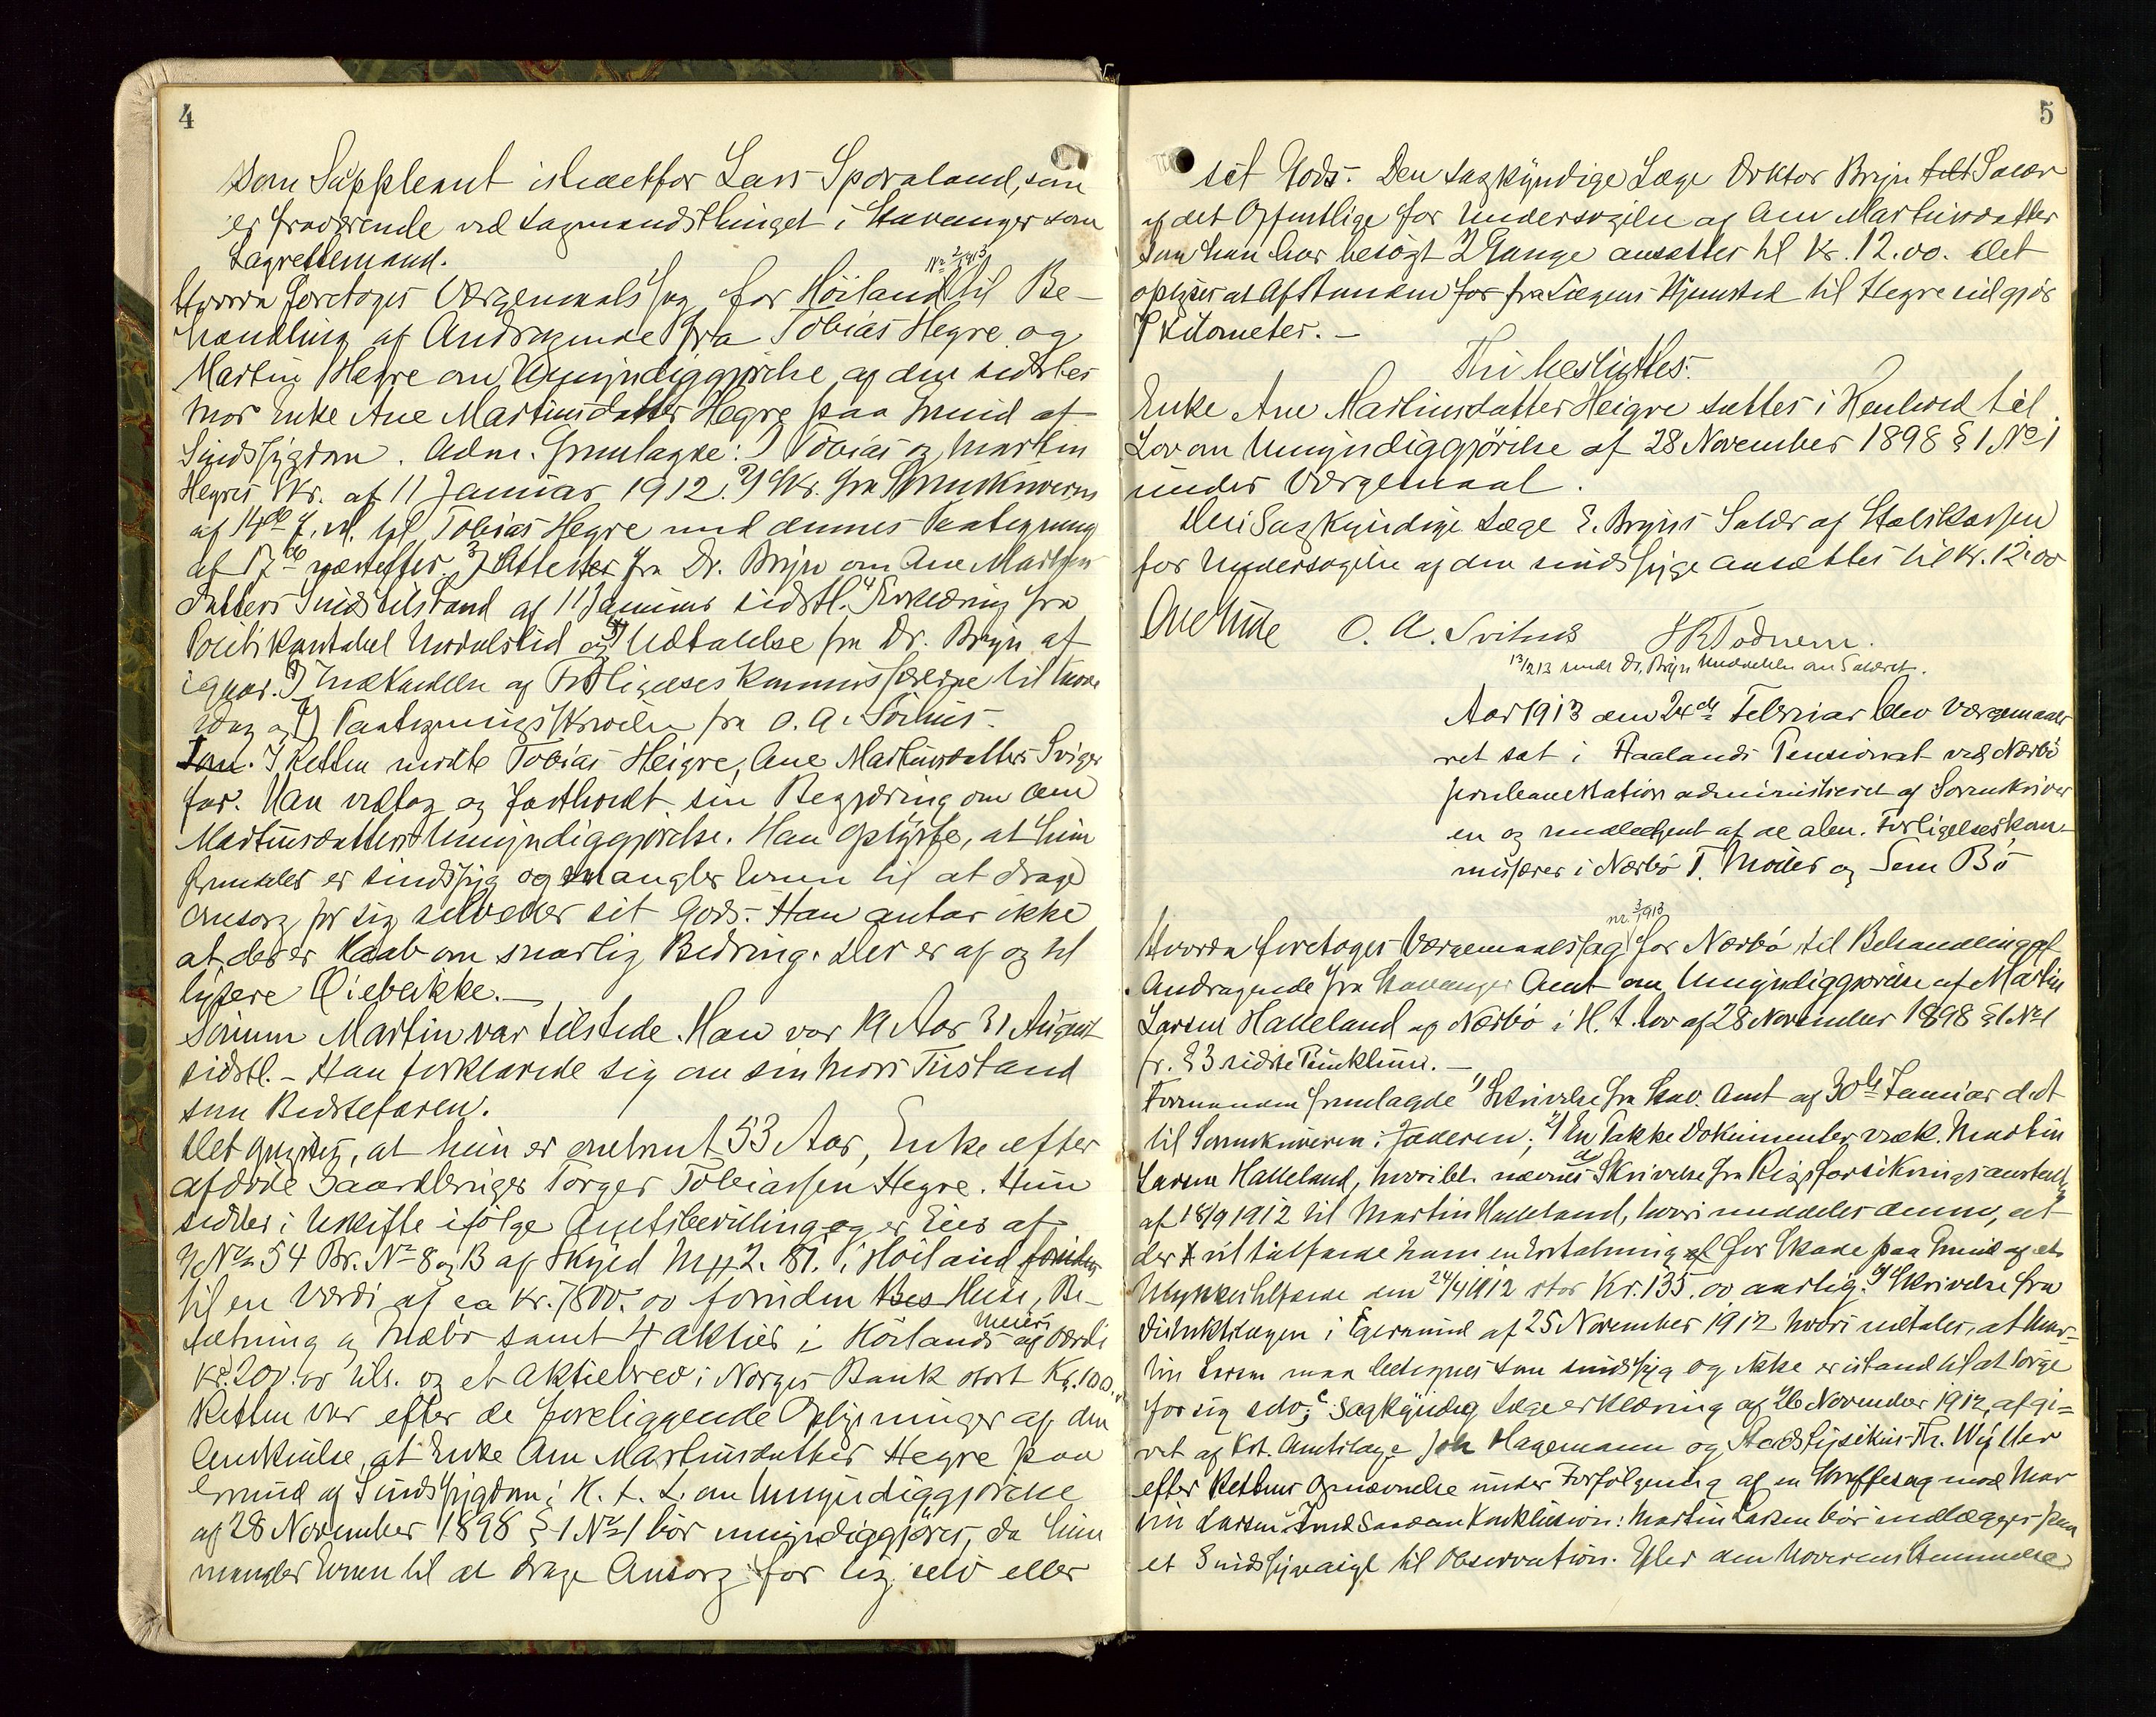 4
som Suppleant istedetfor Lars Sporaland, som
er fraværende ved Lagmandsthinget i Stavanger som
Lagrettemand.
Hvorda foretoges Værgemaalssag No 2/1913 for Höiland til Be-
handling af Andragende fra Tobias Hegre og
Martin Hegre om Umyndiggjørelse af den sidstes
mor Enke Ane Martinsdatter Hegre paa Grund af
Sindssygdom. Adm. fremlagde: 1) Tobias og Martin
Hegres Skr. af 11 Januar 1912. 2) Skr. fra Sorenskriveren
af 14de f. M. til Tobias Hegre med dennes Paategning
af 17de næstefter. 3) Attester fra Dr. Bryn om Ane Martins-
datters Sindstilstand af 11 Januar sidstl. 4) Erklæring fra
Politikonstabel og 5) Udtalelse fra Dr. Bryn af
igaar. 6) Indkaldelse af Forligelseskommissærerne til Møde
idag og 7) Paategningsskrivelse fra O. A. Svihus.
I Retten mødte Tobias Heigre, Ane Martinsdatters Sviger
far. Han vedtog og fastholdt sin Begjæring om Ane
Martinsdatters Umyndiggjørelse. Han oplyste, at hun
fremdeles er sindssyg og mangler Evnen til at drage
Omsorg for sig selv eller sit Gods. Han antar ikke
at der er Haab om snarlig Bedring. Der er af og til
lysere Øieblikke.
Sönnen Martin var tilstede. Han var 19 Aar 31 August
sidstl. - Han forklarede sig om sin Mors Tilstand
som Bedstefaren.
Det oplystes, at hun er omtrent 53 Aar, Enke efter
afdøde Gaardbruger Torger Tobiassen Hegre. Hun
sidder i Uskifte ifölge Amtsbevilling og er Eier af
G. No 54 Br. No 8 og 13 af Skyld M 2. 81. i Höiland
til en Værdi af ca Kr. 7800.00 foruden Huse, Be-
sætning og Indbo samt 4 Aktier i Hölands Meieri af Værdi
Kr. 200.00 tils. og et Aktiebrev i Norges Bank stort Kr. 100.
Retten var efter de foreliggende Oplysninger af den
Anskuelse, at Enke Ane Martinsdatter Hegre paa
Grund af Sindssygdom i H. t. L. om Umyndiggjørelse
af 28 November 1898 § 1 No 1 bör umyndiggjöres, da hun
mangler Evnen til at drage Omsorg for sig selv eller
5
sit Gods. Den sagkyndige Læge Doktor Bryn Salær
af det Offentlige for Undersøgelse af Ane Martinsdatter
som han har besögt 2 Gange ansættes til Kr. 12.00. Det
oplyses at Afstanden fra Lægens Hjemsted til Hegre udgjör
7 Kilometer. -
Thi besluttes:
Enke Ane Martinsdatter Heigre sættes i Henhold til
Lov om Umyndiggjörelse af 28 November 1898 § 1 No 1
under Værgemaal.
Den Sagkyndige Læge E. Bryns Salær af Statskassen
for Undersøgelse af den sindssyge ansættes til Kr. 12.00
O. A. Svihus
13/2 13 sendt Dr. Bryn Meddelelse om Salæret.
Aar 1913 den 24de Februar blev Værgemaals
ret sat i Haalands Pensionat ved Nærbö
Jernbanestation administreret af Sorenskriver
en og medbetjent af de alm. Forligelseskom-
missærer i Nærbö T. Motland og Sem Bö
Hvorda foretoges Værgemaalssag nr. 3/1913 for Nærbö til Behandling af
Andragende fra Stavanger Amt om Umyndiggjörelse af Martin
Larsen Halleland af Nærbö i H. t. Lov af 28 November 1898 § 1 No 1
fr. § 3 sidste Punktum. -
Formanden fremlagde 1) Skrivelse fra Stav. Amt af 30te Januar d.A
til Sorenskriveren i Jæderen; 2) En Pakke Dokumenter vedk. Martin
Larsen Halleland, hvoribl. nævnes a) Skrivelse fra Rigsforsikringsanstalten
af 18/9 1912 til Martin Halleland, hvori meddeles denne, at
der vil tilfalde ham en Erstatning for Skade paa Grund af et
Ulykkestilfælde den 24/4 1912 stor Kr. 135.00 aarlig. b) Skrivelse fra
Distriktslægen i Egersund af 25 November 1912 hvori udtales, at Mar-
tin Larsen maa betegnes som sindssyg og ikke er istand til at sörge
for sig selv; c) Sagkyndig Lægeerklæring af 26 November 1912, afgi=
vet af Kst. Amtslæge Joh Hagemann og Stadsfysikus Th. Wyller
efter Rettens Opnævnelse under Forfölgning af en Straffesag mod Mar
tin Larsen saadan Konklusion: Martin Larsen bör indlægges paa
et Sindssygeasyl til Observation. Efter den